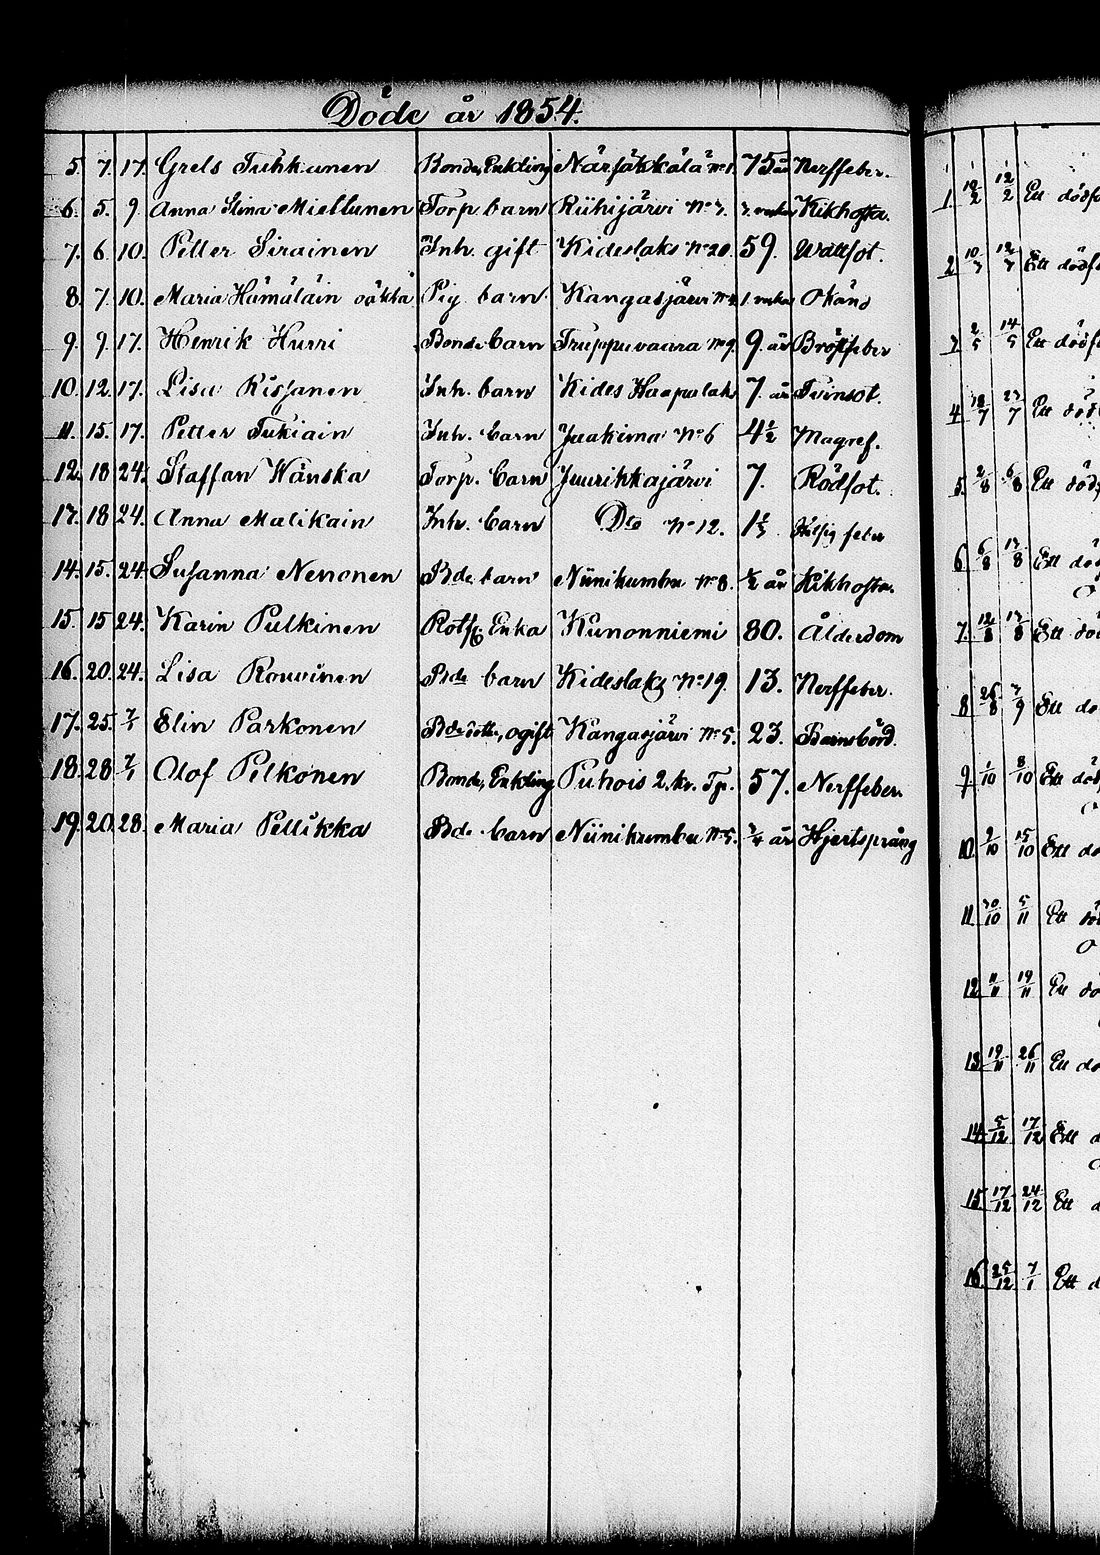 Döde år 1854.
5. 7. 17. Grels Tuhkunen Bonde, Enkling Närsäkkälä No 1. 75 år Nerffeber.
6. 5. 9. Anna Stina Miettunen Torp. barn Riihijärvi No 3. 3. veckor Kikhosta.
7. 6. 10. Petter Sirainen Inh. gift Kideslaks No 20. 59. Wattsot.
8. 7. 10. Maria Hämäläin oäkta Pig. barn Kangasjärvi No 2. 1 vecka Okänd
9. 9. 17. Henrik Hurri Bonde barn Truppuvaara No 9. 9. år Bröstfeber
10. 12. 17. Lisa Rissanen Inh. barn Kides Haapalaks 7. år Tvinsot.
11. 15. 17. Petter Tukiain Inh. barn Jaakima No 6 4 1/2 Magref.
12. 18 24. Staffan Wänska Torp. barn Juurikkajärvi 7. Rödsot.
13. 18 24. Anna Malikain Inh. barn Dto No 12. 1 1/3 feber
14. 15. 24. Susanna Nenonen Bde barn Niinikumbu No 8. 1/2 år Kikhosta.
15. 15 24. Karin Pulkinen Rotf. Enka Kunonniemi 80. Ålderdom
16. 20. 24. Lisa Rouvinen Bde barn Kideslaks No 19. 13. Nerffeber.
17. 25. 7/1 Elin Parkonen Bde dotter, ogift Kangasjärvi No 5. 23. Barnsbörd.
18. 28 7/1 Olof Pelkonen Bonde, Enkling Puhois 2. kr. Tp. 57. Nerffeber.
19. 20. 28. Maria Pellikka Bde barn Niinikumbu No 5. 3/4 år Hjertsprång
1. 12/2 12/2 Ett dödf
2. 10/3 12/3 Ett dödf
3. 2/5 14/5 Ett dödf
4. 18/7 23/7 Ett död
5. 2/8 6/8 Ett död
6. 6/8 13/8 Ett dö
7. 12/8 13/8 Ett dö
8. 26/8 3/9 Ett dö
9. 1/10 8/10 Ett död
10. 2/10 15/10 Ett dö
11. 30/10 5/11 Ett död
12. 11/11 19/11 Ett dö
13. 19/11 26/11 Ett dö
14. 5/12 17/12 Ett d
15. 17/12 24/12 Ett d
16. 25/12 7/1 Ett d